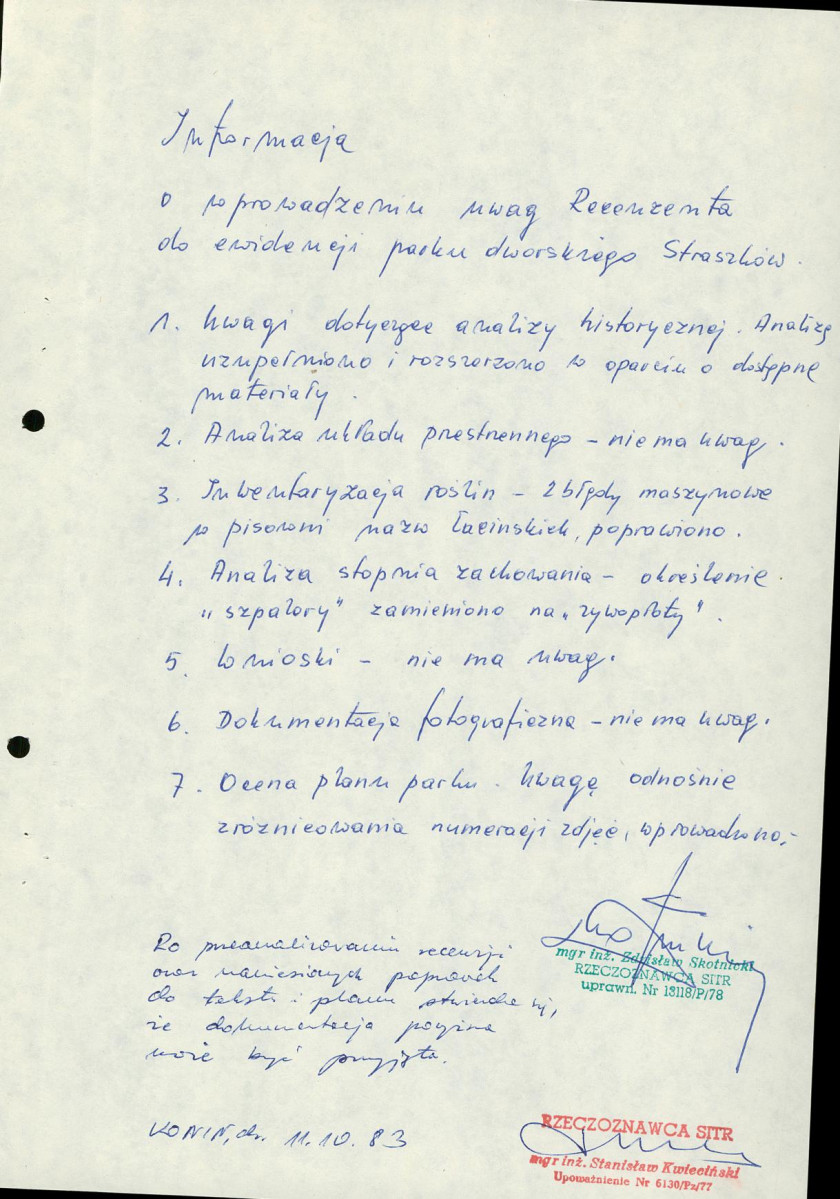 Informacja
o wprowadzeniu uwag Recenzenta
do ewidencji parku dworskiego Straszków.
1. Uwagi dotyczące analizy historycznej. Analizę
uzupełniono i rozszerzono w oparciu o dostępne
materiały.
2. Analiza układu przestrzennego – nie ma uwag.
3. Inwentaryzacja roślin – 2 błędy maszynowe
w pisowni nazw łacińskich, poprawiono.
4. Analiza stopnia zachowania – określenie
"szpalery" zamieniono na "żywopłoty".
5. Wnioski – nie ma uwag.
6. Dokumentacja fotograficzna – nie ma uwag.
7. Ocena planu parku. Uwagę odnośnie
zróżnicowania numeracji zdjęć, wprowadzono,-
mgr inż. Zdzisław Skotnicki
RZECZOZNAWCA SITR
uprawn. Nr 13118/P/78
Po przeanalizowaniu recenzji
oraz naniesionych poprawek
do tekstu i planu stwierdza się,
że dokumentacja
może być przyjęta.
KONIN, dn. 11.10.83
RZECZOZNAWCA SITR
mgr inż. Stanisław Kwieciński
Upoważnienie Nr 6130/Pz/77